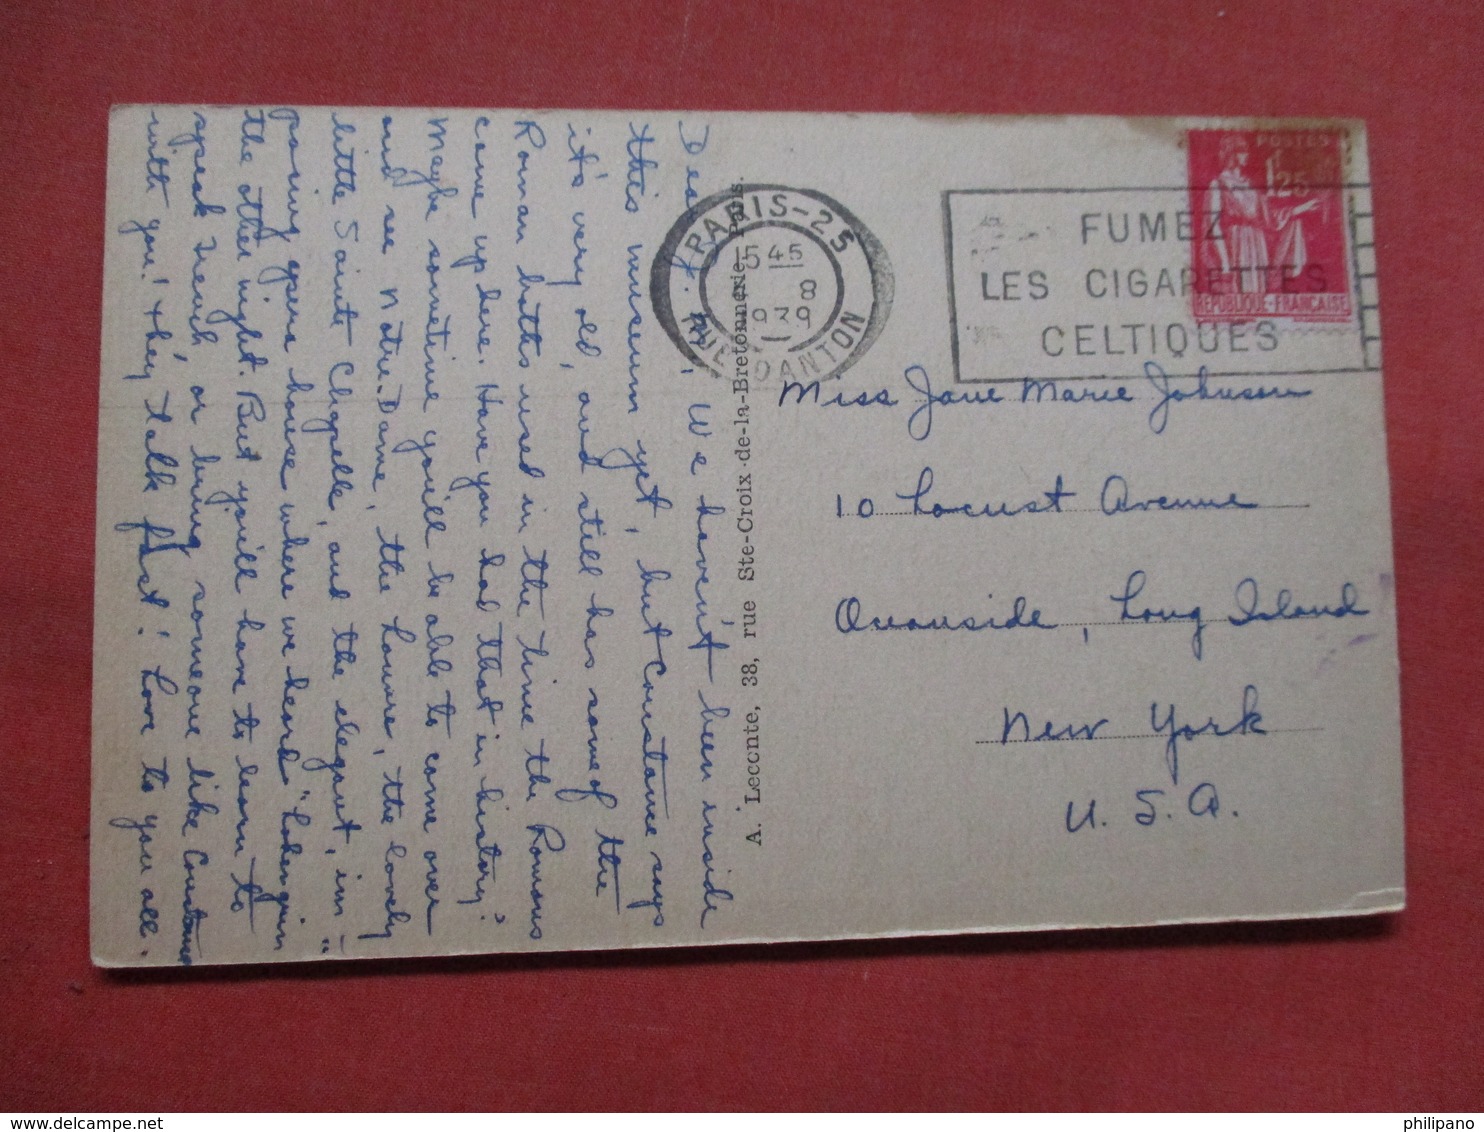 Dear J. M., We haven't been inside
this museum yet, but Constance says
it's very old, and still has some of the
Roman baths used in the time the Romans
came up here. Have you had that in history?
Maybe sometime you'll be able to come over
and see Notre-Dame, the Louvre, the lovely
little Sainte Chapelle, and the elegant, im-
posing opera house where we heard "Lohengrin"
the other night. But you'll have to learn to
speak French, or bring someone like Constance
with you! + they talk fast! Love to you all.
A. Leconte, 38, rue Ste-Croix-de-la-Bretonnerie, Paris.
PARIS-25
15 45
8
1939
RUE DANTON
FUMEZ
LES CIGARETTES
CELTIQUES
POSTES
1F25
REPUBLIQUE-FRANÇAISE
Miss Jane Marie Johnson
10 Locust Avenue
Oceanside, Long Island
New York
U. S. A.
philipano